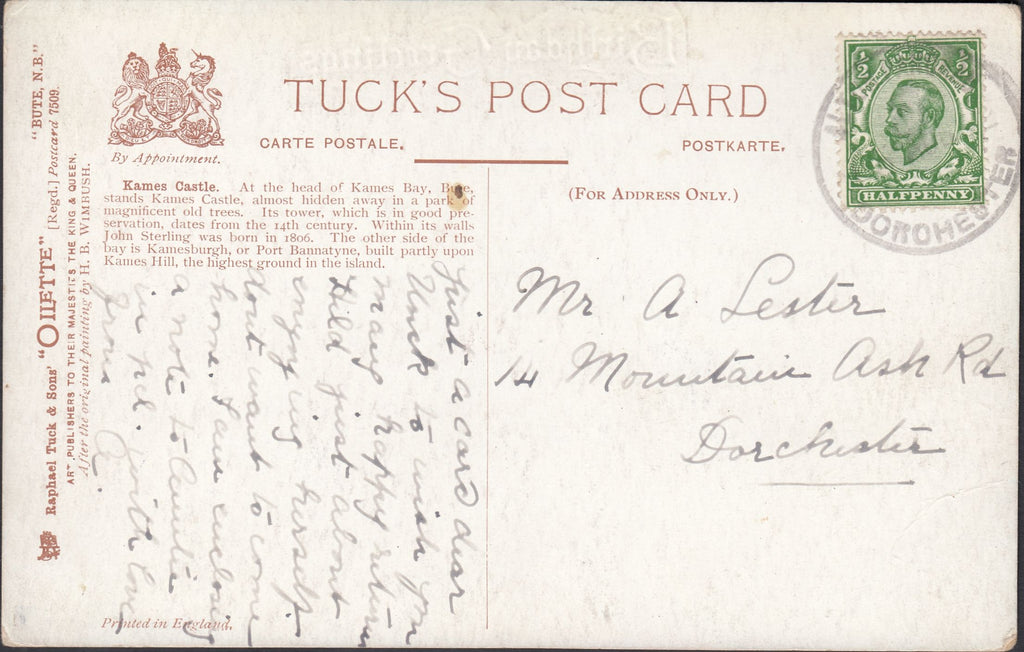 TUCK'S POST CARD
CARTE POSTALE.
POSTKARTE.
(FOR ADDRESS ONLY.)
By Appointment.
Kames Castle. At the head of Kames Bay, Bute,
stands Kames Castle, almost hidden away in a park of
magnificent old trees. Its tower, which is in good pre-
servation, dates from the 14th century. Within its walls
John Sterling was born in 1806. The other side of the
bay is Kamesburgh, or Port Bannatyne, built partly upon
Kames Hill, the highest ground in the island.
"BUTE, N.B."
Raphael Tuck & Sons' "OILETTE" [Regd.] Postcard 7509.
ART PUBLISHERS TO THEIR MAJESTIES THE KING & QUEEN.
After the original painting by H. B. WIMBUSH.
Printed in England.
½ ½
POSTAGE REVENUE
HALFPENNY
DORCHESTER
Mr A Lester
14 Mountain Ash Rd
Dorchester
Just a card dear
to wish you
many happy returns
Hild just about
enjoying herself
dont want to come
home. I am enclosing
a note to
in pcl. with love
from